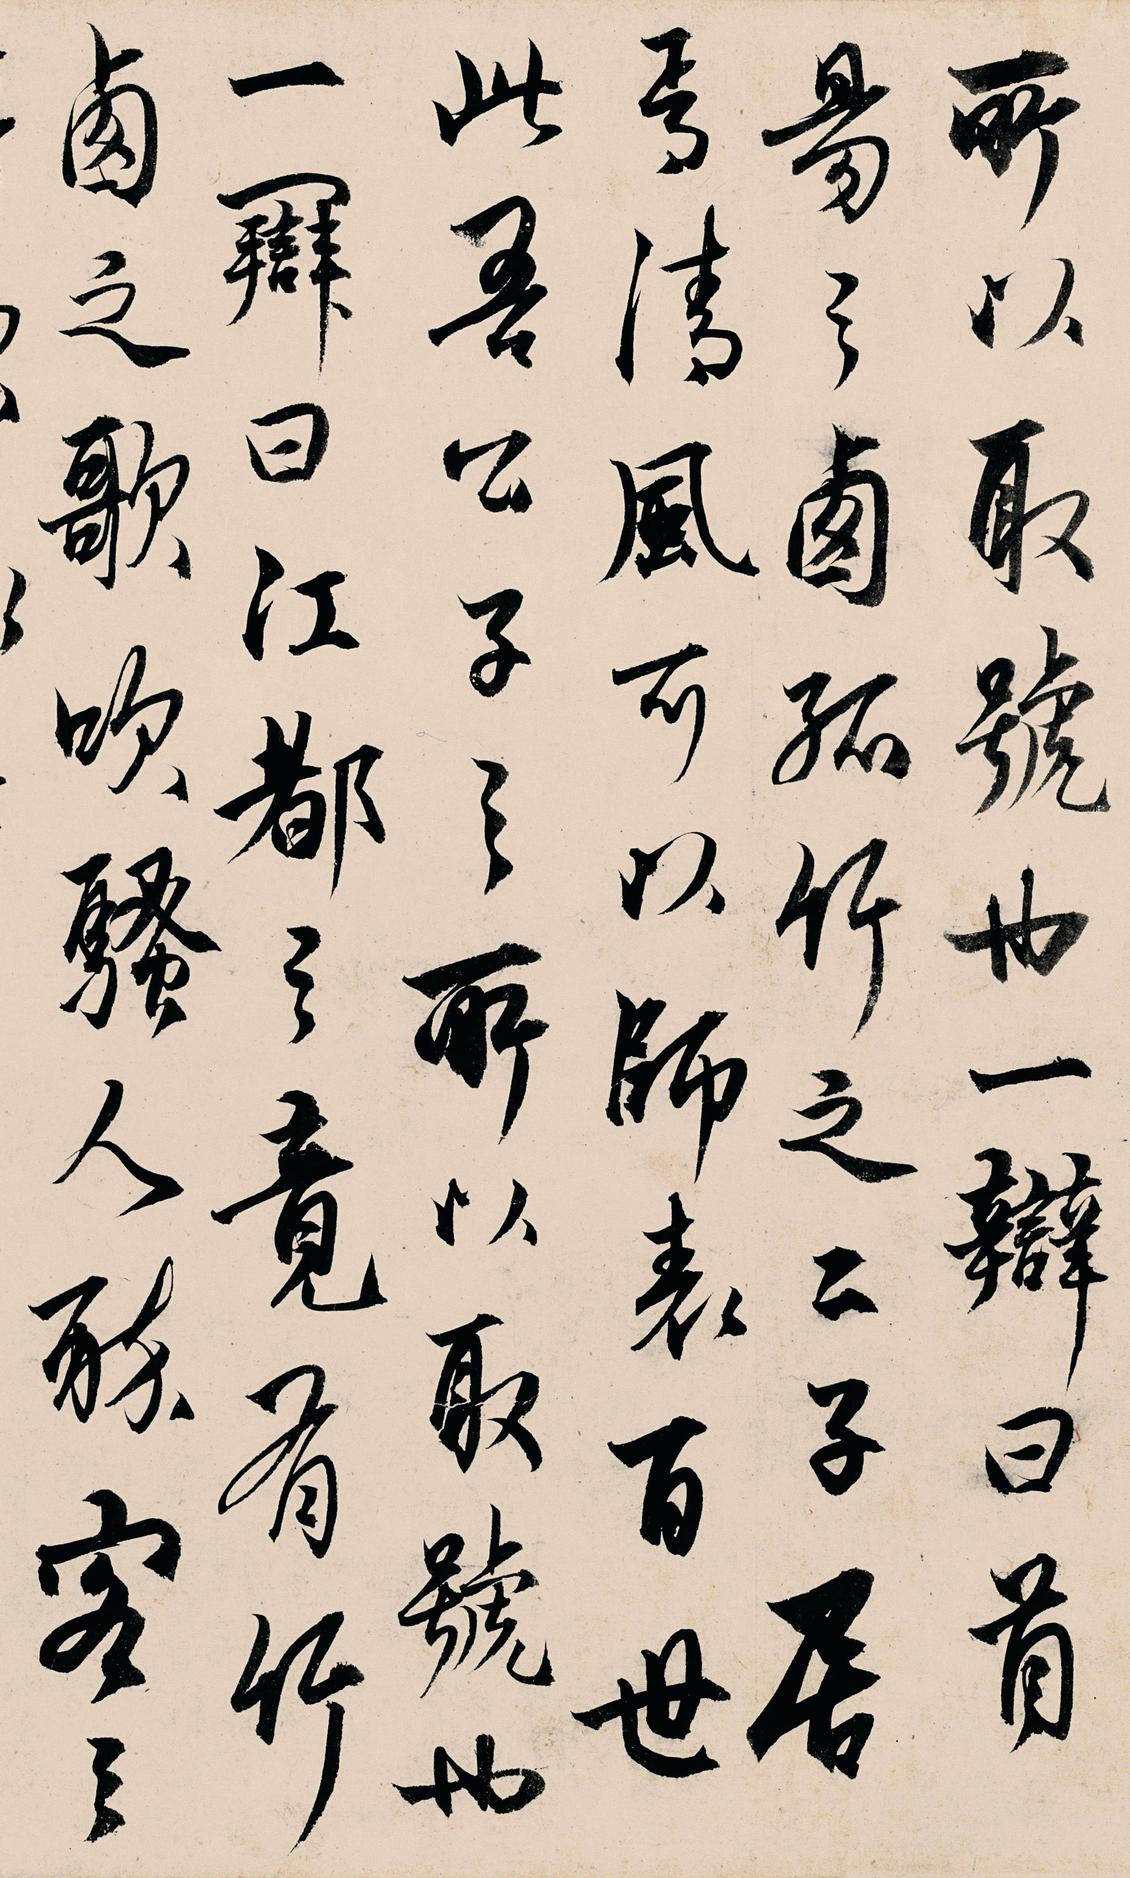 所以取號也一辯曰首
昜之卤孤竹之二子居
焉清風可以師表百世
此吾公子之所以取號也
一辯曰江都之竟有竹
卤之歌吹騷人酔客之